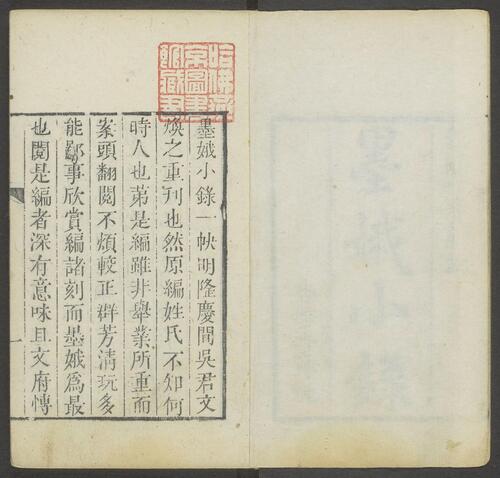 哈佛燕
京圖書
館藏
墨娥小錄一帙明隆慶間吳君文
煥之重刊也然原編姓氏不知何
時人也苐是編雖非舉業所重而
案頭翻閱不煩較正群芳清玩多
能鄙事欣賞編諸刻而墨娥爲最
也閱是編者深有意味且文府慱
一